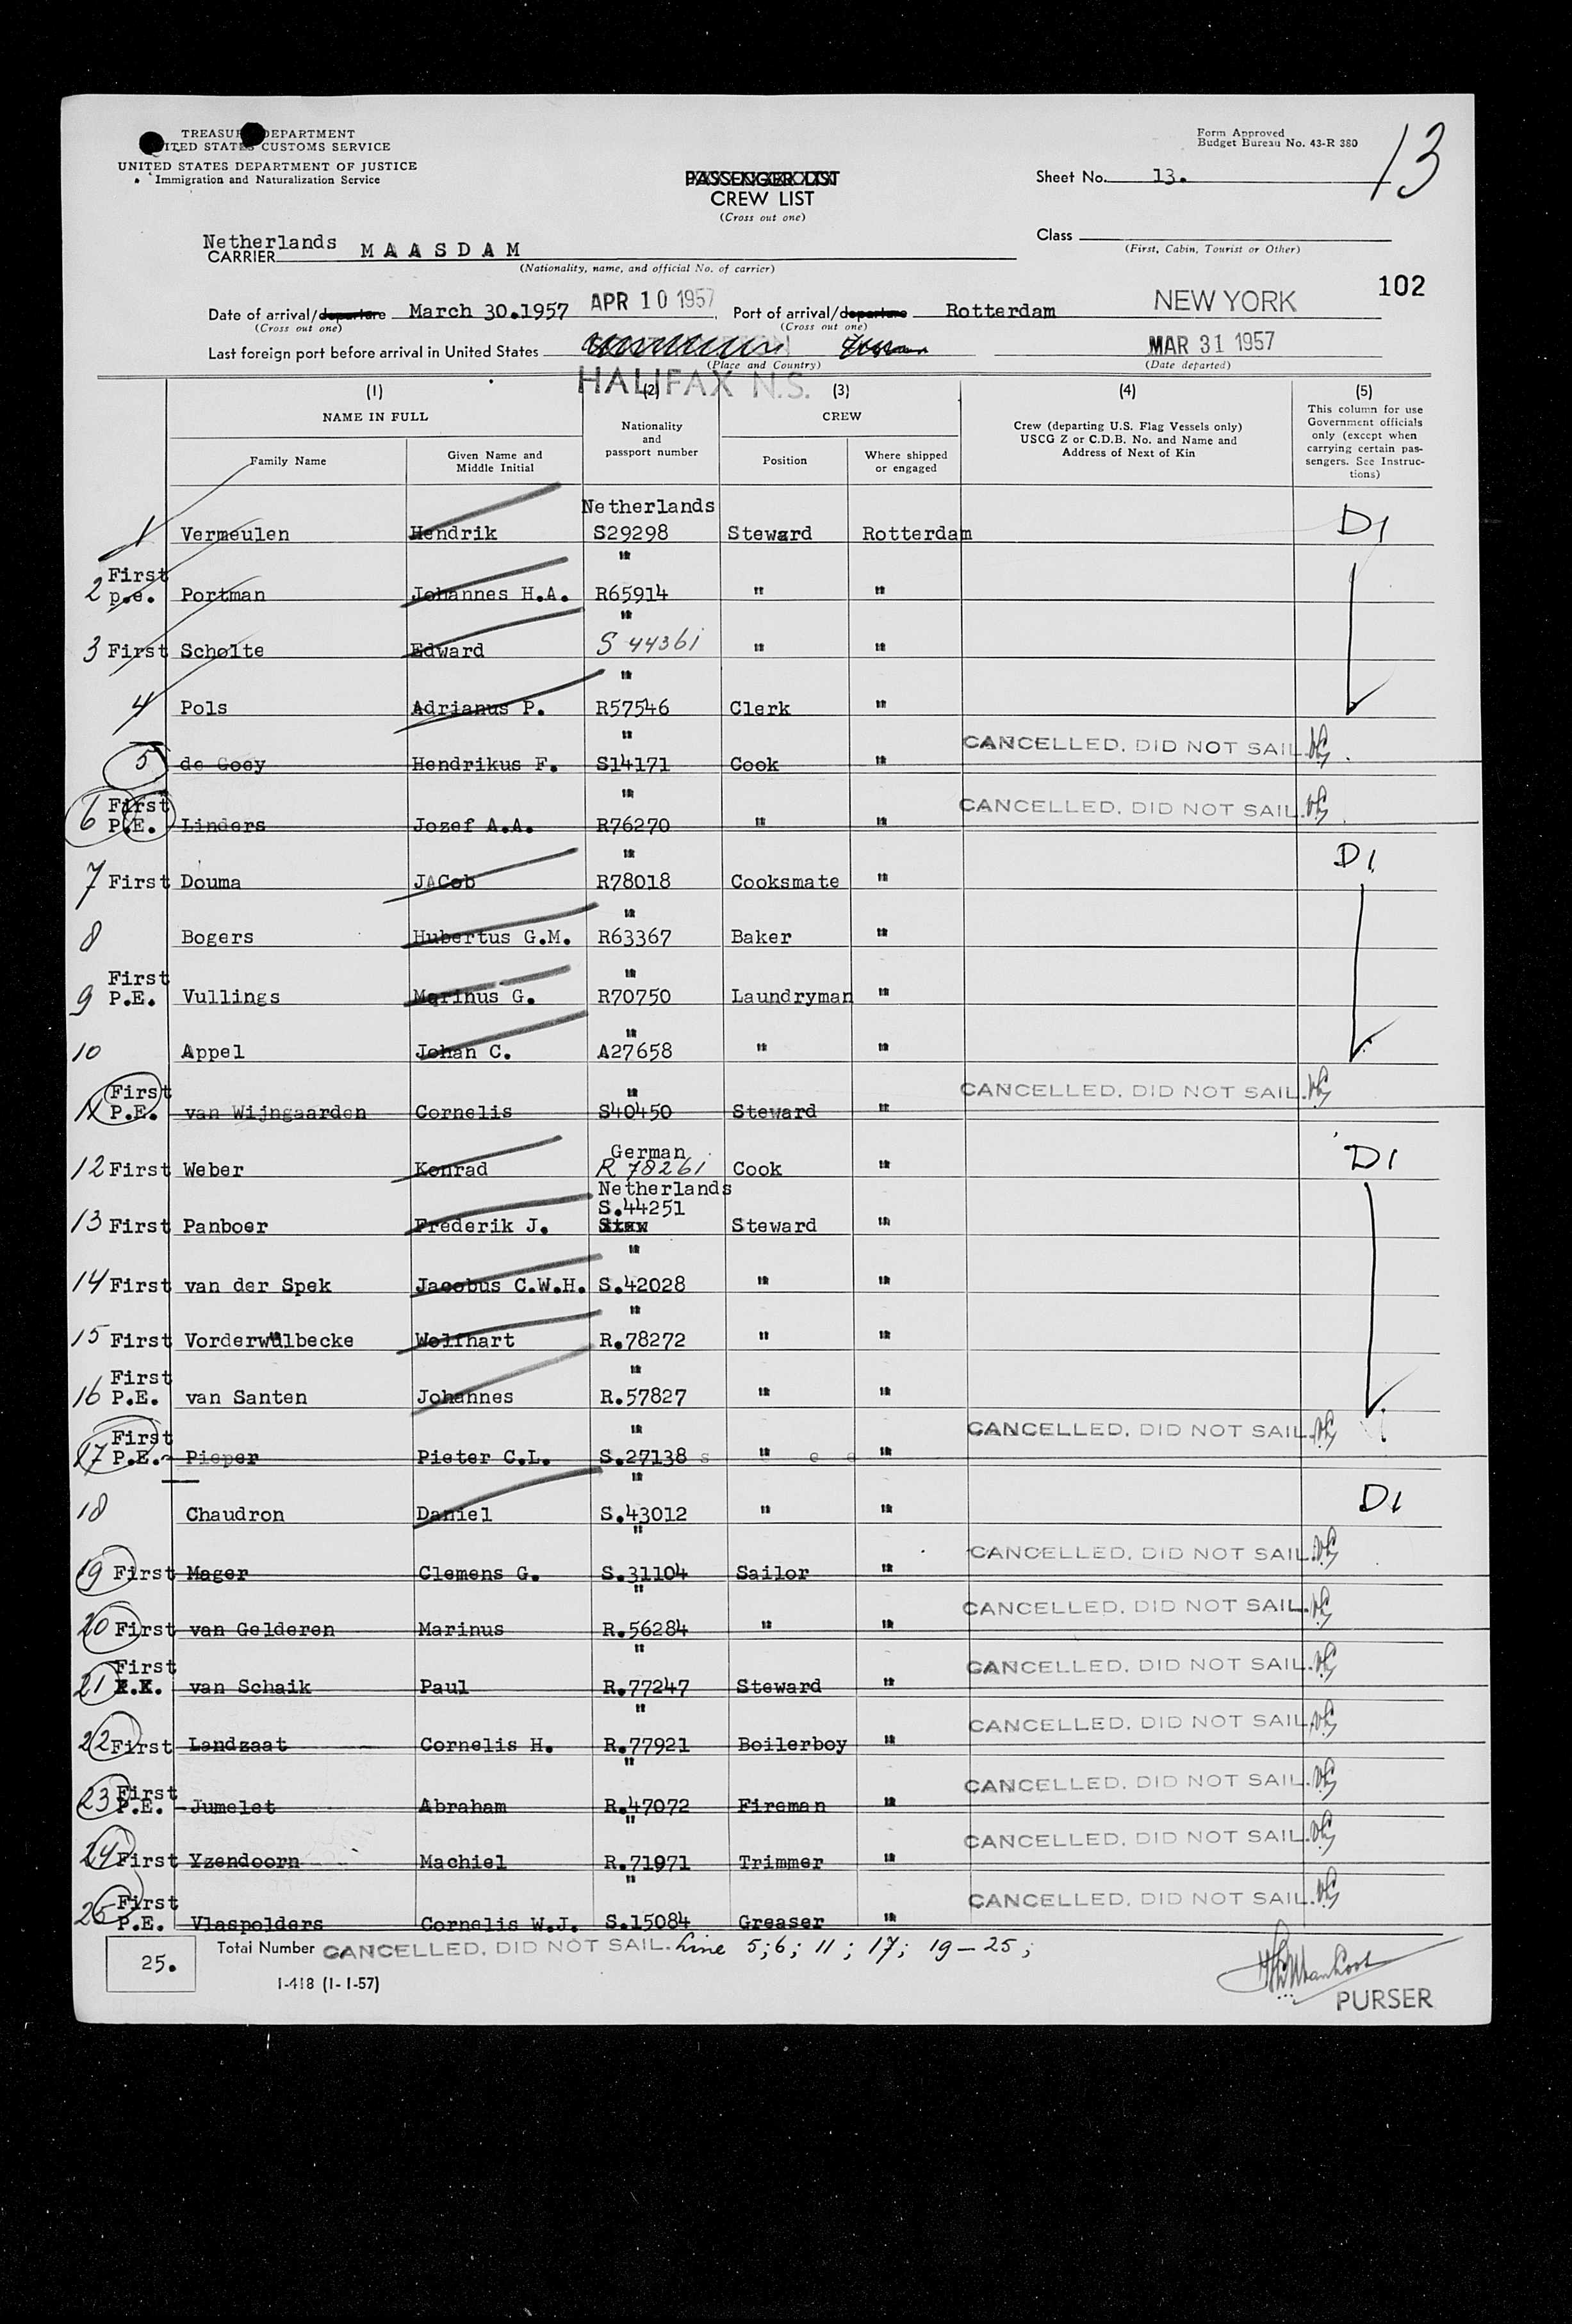 TREASURY DEPARTMENT
UNITED STATES CUSTOMS SERVICE
UNITED STATES DEPARTMENT OF JUSTICE
Immigration and Naturalization Service
Form Approved
Budget Bureau No. 43-R 380
13
PASSENGER LIST
CREW LIST
(Cross out one)
Sheet No. 13.
Class
(First, Cabin, Tourist or Other)
Netherlands
CARRIER M A A S D A M
(Nationality, name, and official No. of carrier)
102
Date of arrival/departure March 30.1957 APR 10 1957 Port of arrival/departure Rotterdam NEW YORK
(Cross out one) (Cross out one)
Last foreign port before arrival in United States MAR 31 1957
(Place and Country) (Date departed)
HALIFAX N.S.
(1) (2) (3) (4) (5)
NAME IN FULL
Family Name
Given Name and Middle Initial
Nationality and passport number
CREW
Position
Where shipped or engaged
Crew (departing U.S. Flag Vessels only)
USCG Z or C.D.B. No. and Name and
Address of Next of Kin
This column for use
Government officials
only (except when
carrying certain pas-
sengers. See Instruc-
tions)
Netherlands
1 Vermeulen Hendrik S29298 Steward Rotterdam D1
"
2 First p.e. Portman Johannes H.A. R65914 " "
"
3 First Scholte Edward S 44361 " "
"
4 Pols Adrianus P. R57546 Clerk "
"
5 de Gooy Hendrikus F. S14171 Cook " CANCELLED, DID NOT SAIL.
"
6 First P.E. Linders Jozef A.A. R76270 " " CANCELLED, DID NOT SAIL.
"
7 First Douma JACob R78018 Cooksmate " D1
"
8 Bogers Hubertus G.M. R63367 Baker "
"
9 First P.E. Vullings Marinus G. R70750 Laundryman "
"
10 Appel Johan C. A27658 " "
"
11 First P.E. van Wijngaarden Cornelis S40450 Steward " CANCELLED, DID NOT SAIL.
German
12 First Weber Konrad R 78261 Cook " D1
Netherlands
S.44251
13 First Panboer Frederik J. Steward "
"
14 First van der Spek Jacobus C.W.H. S.42028 " "
"
15 First Vorderwülbecke Wolfhart R.78272 " "
"
16 First P.E. van Santen Johannes R.57827 " "
"
17 First P.E. Pieper Pieter C.L. S.27138 " " CANCELLED, DID NOT SAIL.
"
18 Chaudron Daniel S.43012 " " D1
"
19 First Mager Clemens G. S.31104 Sailor " CANCELLED, DID NOT SAIL.
"
20 First van Gelderen Marinus R.56284 " " CANCELLED, DID NOT SAIL.
"
21 First van Schaik Paul R.77247 Steward " CANCELLED, DID NOT SAIL.
"
22 First Landzaat Cornelis H. R.77921 Boilerboy " CANCELLED, DID NOT SAIL.
"
23 First P.E. Jumelet Abraham R.47072 Fireman " CANCELLED, DID NOT SAIL.
"
24 First Yzendoorn Machiel R.71971 Trimmer " CANCELLED, DID NOT SAIL.
"
25 First P.E. Vlaspolders Cornelis W.J. S.15084 Greaser " CANCELLED, DID NOT SAIL.
25. Total Number CANCELLED, DID NOT SAIL. Line 5; 6; 11; 17; 19-25;
I-418 (1-1-57)
PURSER